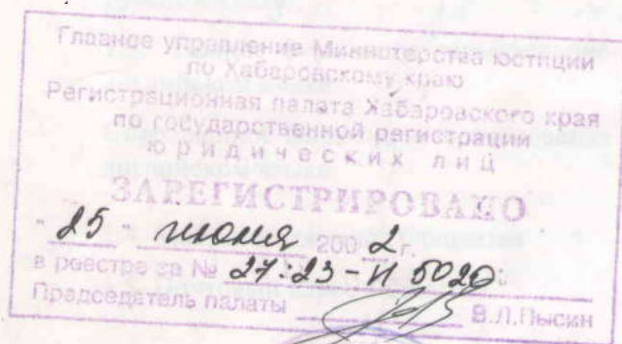 Главное управление Министерства юстиции
по Хабаровскому краю
Регистрационная палата Хабаровского края
по государственной регистрации
юридических лиц
ЗАРЕГИСТРИРОВАНО
"25" июня 2002 г.
в реестре за № 27:23-И 5020
Председатель палаты В.Л.Лысин